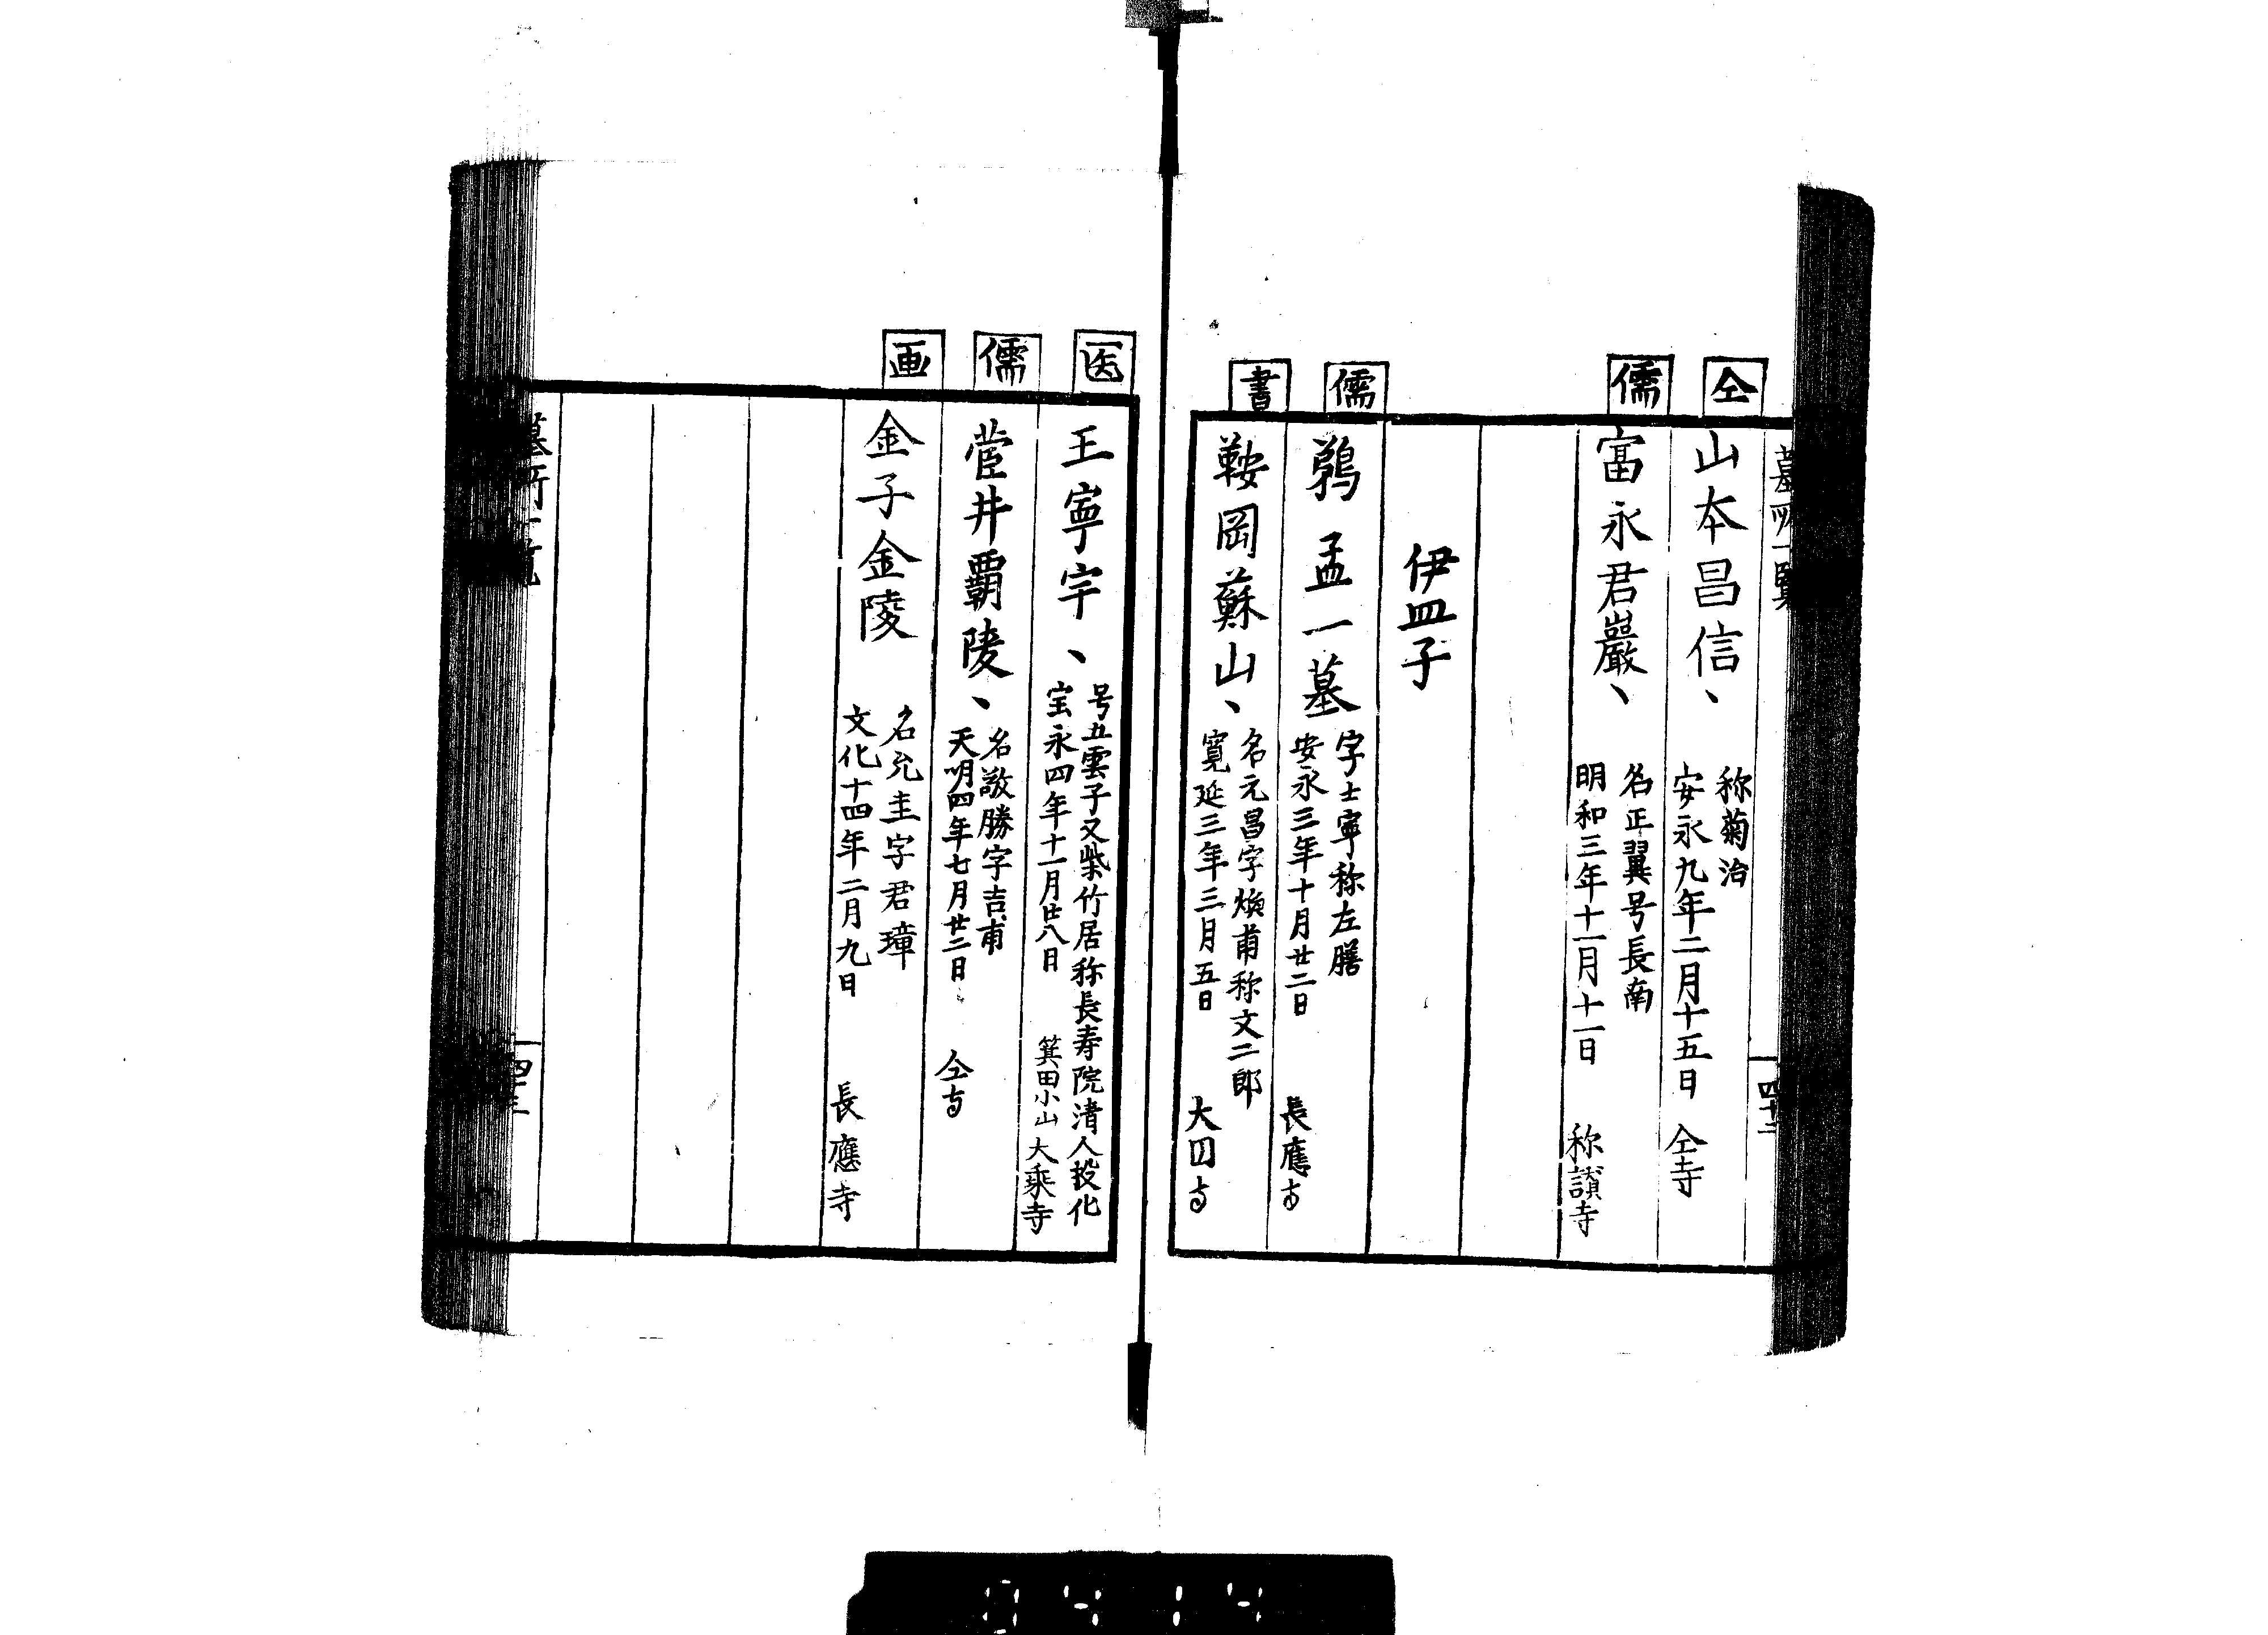 墓所一覧
四十二
仝
山本昌信、
称菊治
安永九年二月十五日
仝寺
儒
富永君巖、
名正翼号長南
明和三年十一月十一日
称讃寺
伊皿子
儒
鵜孟一墓
字士寧称左膳
安永三年十月廿二日
長應寺
書
鞍岡蘇山、
名元昌字煥甫称文二郎
寛延三年三月五日
大円寺
医
王寧宇、
号五雲子又紫竹居称長寿院清人投化
宝永四年十一月廿八日
箕田小山
大乗寺
儒
菅井覇陵、
名敬勝字吉甫
天明四年七月廿二日
仝寺
画
金子金陵
名允圭字君璋
文化十四年二月九日
長應寺
墓所一覧